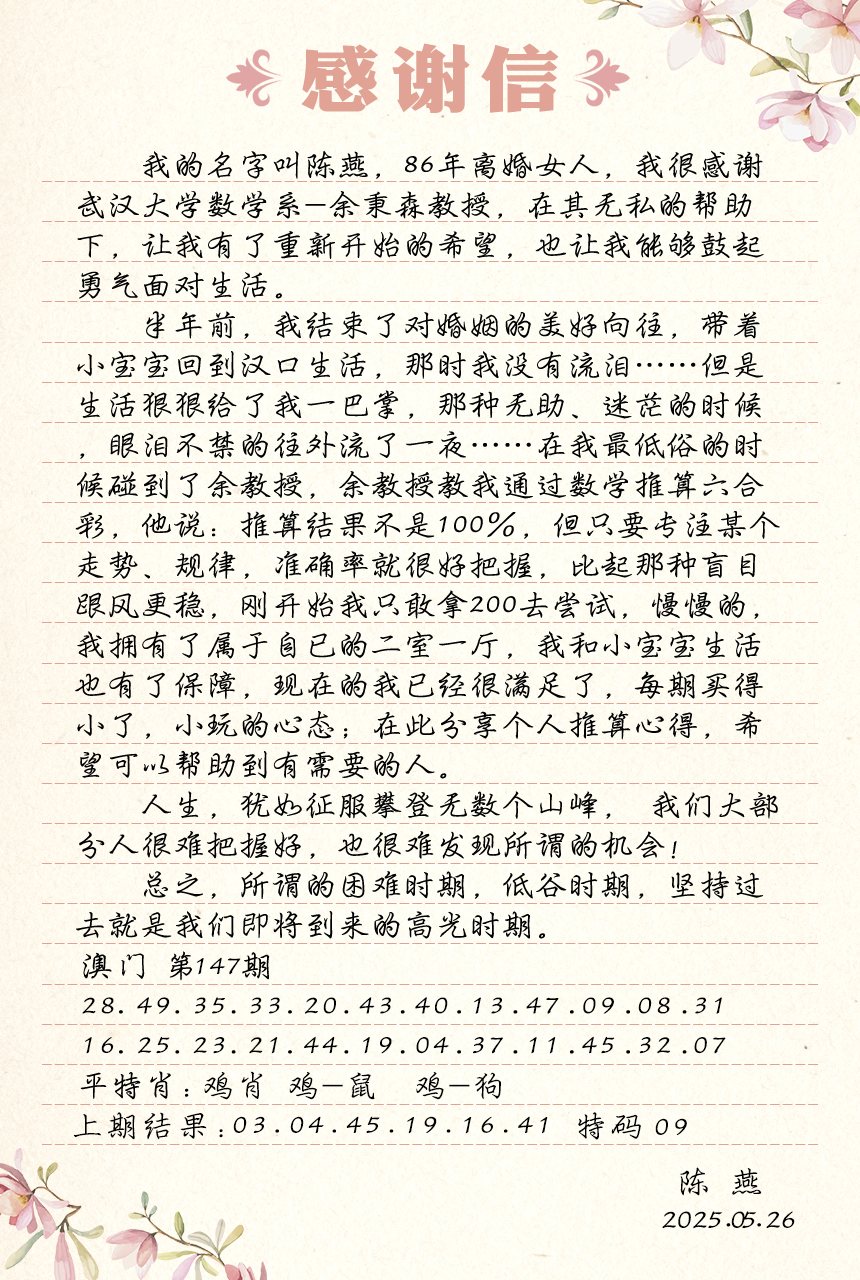 感谢信
我的名字叫陈燕，86年离婚女人，我很感谢
武汉大学数学系—余秉森教授，在其无私的帮助
下，让我有了重新开始的希望，也让我能够鼓起
勇气面对生活。
半年前，我结束了对婚姻的美好向往，带着
小宝宝回到汉口生活，那时我没有流泪……但是
生活狠狠给了我一巴掌，那种无助、迷茫的时候
，眼泪不禁的往外流了一夜……在我最低俗的时
候碰到了余教授，余教授教我通过数学推算六合
彩，他说：推算结果不是100%，但只要专注某个
走势、规律，准确率就很好把握，比起那种盲目
跟风更稳，刚开始我只敢拿200去尝试，慢慢的，
我拥有了属于自已的二室一厅，我和小宝宝生活
也有了保障，现在的我已经很满足了，每期买得
小了，小玩的心态；在此分享个人推算心得，希
望可以帮助到有需要的人。
人生，犹如征服攀登无数个山峰， 我们大部
分人很难把握好，也很难发现所谓的机会！
总之，所谓的困难时期，低谷时期，坚持过
去就是我们即将到来的高光时期。
澳门 第147期
28.49.35.33.20.43.40.13.47.09.08.31
16.25.23.21.44.19.04.37.11.45.32.07
平特肖：鸡肖 鸡—鼠 鸡—狗
上期结果：03.04.45.19.16.41 特码 09
陈 燕
2025.05.26